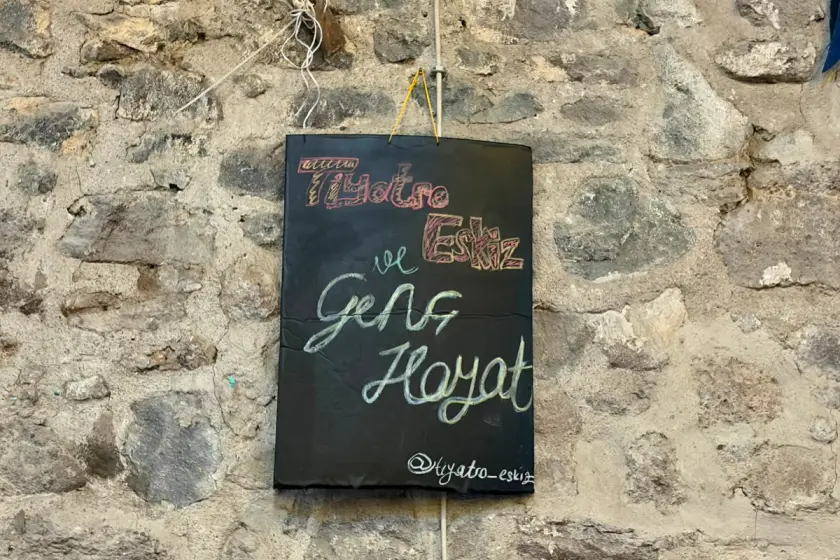 Tiyatro
Eskiz
ve
Genç
Hayat
@tiyatro_eskiz